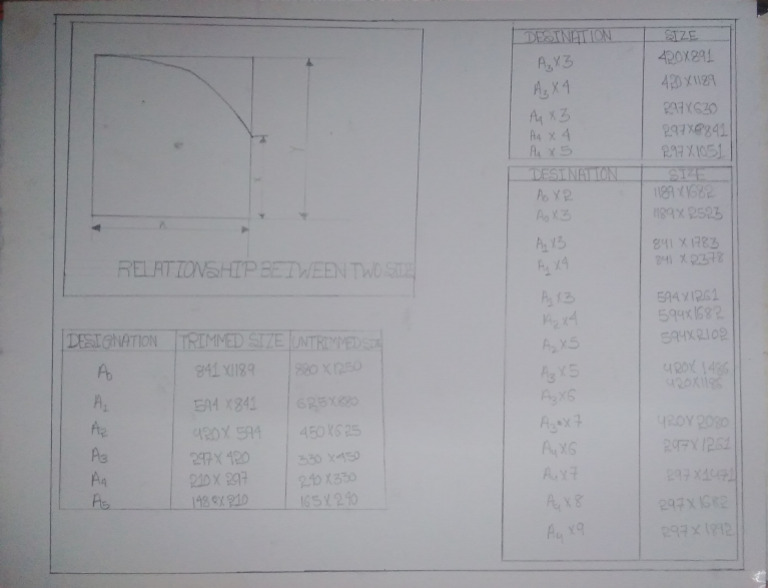 X
X
Y
RELATIONSHIP BETWEEN TWO SIZE
DESIGNATION TRIMMED SIZE UNTRIMMED SIZE
A0 841 X1189 880 X 1250
A1 594 X841 625X880
A2 420 X 594 450X625
A3 297 X 420 330 X450
A4 210 X 297 240 X330
A5 148 X210 165 X 240
DESINATION SIZE
A3 X 3 420X891
A3 X 4 420 X1189
A4 X 3 297X630
A4 X 4 297X841
A4 X 5 297 X1051
DESINATION SIZE
A0 X 2 1189 X1682
A0 X 3 1189 X 2523
A1 X3 841 X 1783
A1 X4 841 X 2378
A2 X3 594 X1261
A2 X4 594X1682
A2 X5 594X2102
A3 X5 420X 1486
A3 X6 420X
A3 X7 420X2080
A4 X6 297 X1261
A4 X7 297 X1471
A4 X8 297 X1682
A4 X9 297 X1892